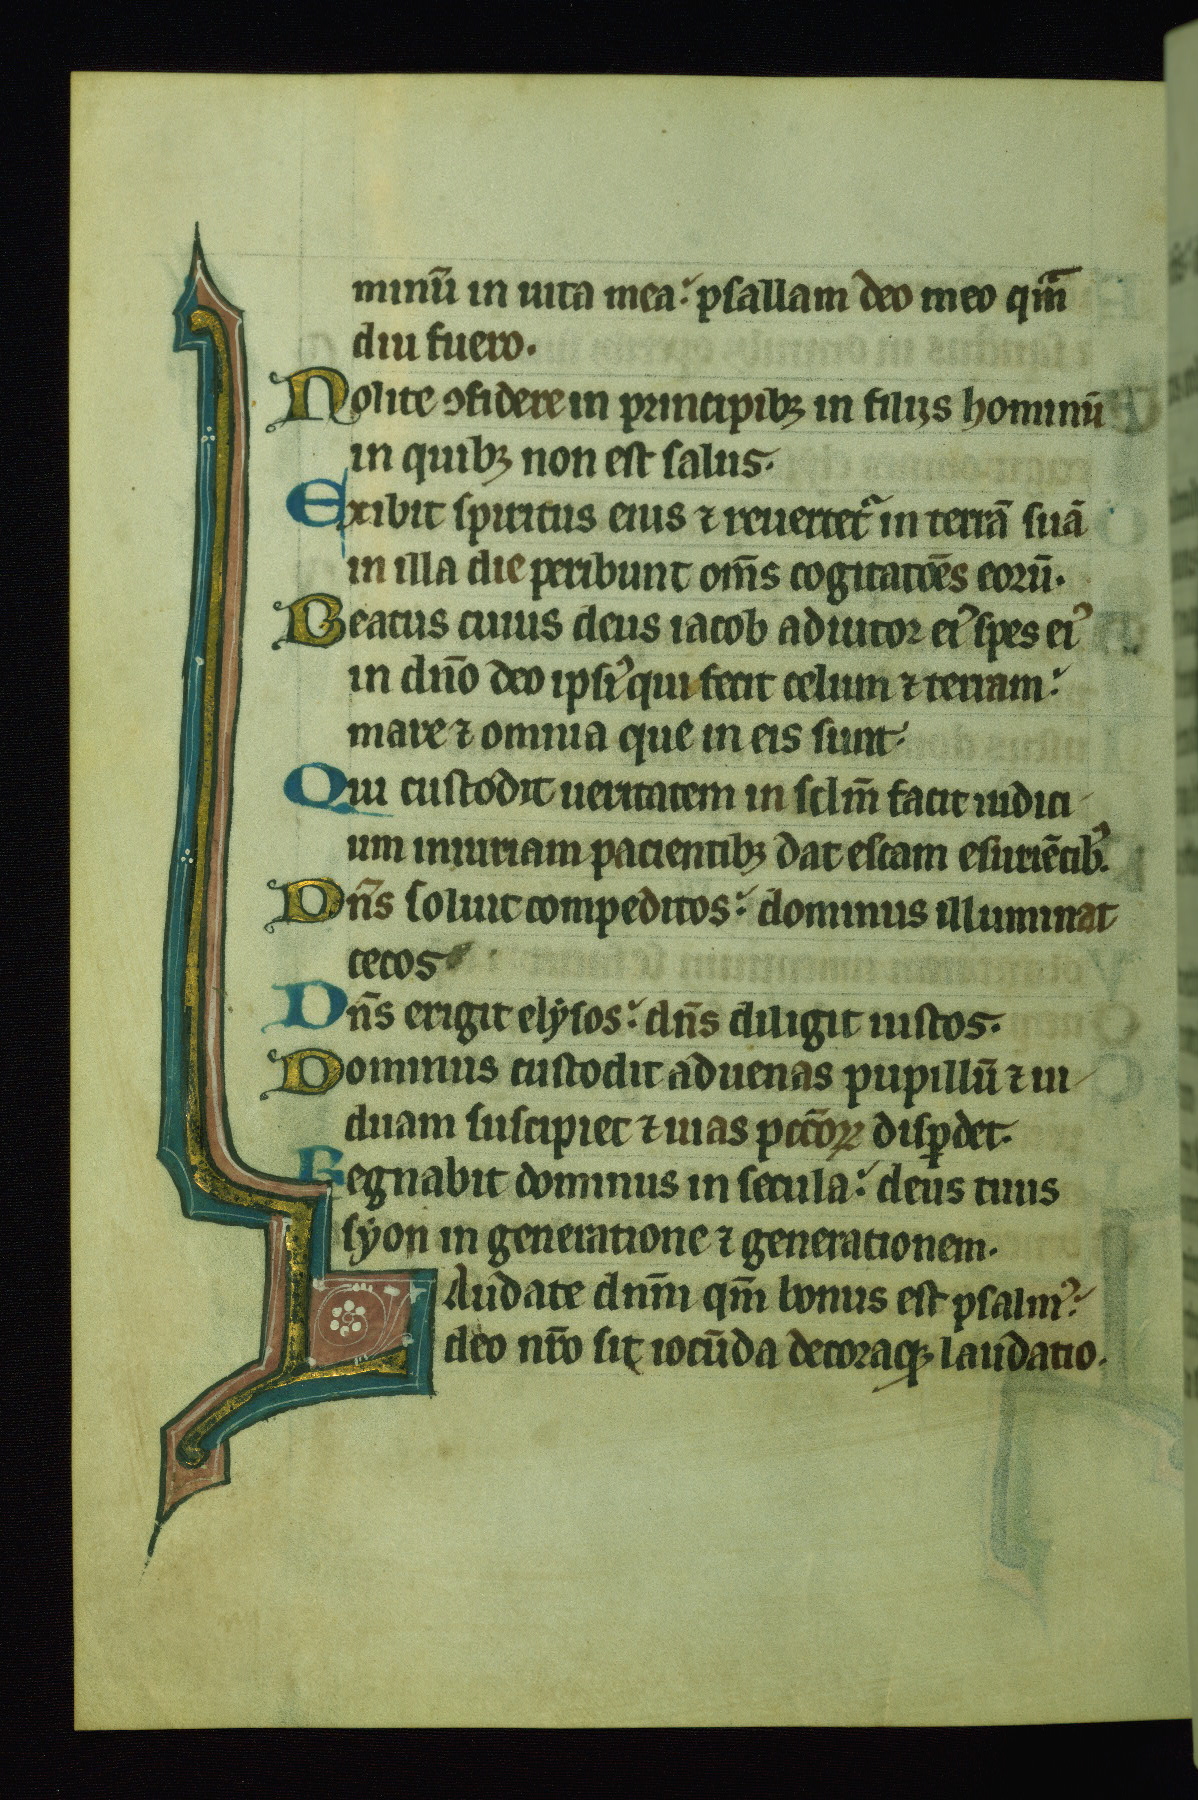 minu᷑ in uita mea: psallam deo meo qm̃
diu fuero.
Nolite ꝯfidere in principibꝫ in filijs hominū
in quibꝫ non est salus.
Exibit spiritus eius ⁊ reuertet᷑ in terrā suā
in illa die peribunt om̄s cogitatōes eorū.
Beatus cuius deus iacob adiutor eiꝰ spes eiꝰ
in dn̄o deo ipsiꝰ qui fecit celum ⁊ terram:
mare ⁊ omnia que in eis sunt.
Qui custodit ueritatem in sclm̄ facit iudici
um iniuriam pacientibꝫ dat escam esuriētibꝰ.
Dn̄s soluit compeditos: dominus illuminat
cecos
Dn̄s erigit elẏsos: dn̄s diligit iustos.
Dominus custodit aduenas pupillū ⁊ ui
duam suscipiet ⁊ uias pccōꝝ disꝑdet.
Regnabit dominus in secula: deus tuus
sẏon in generatione ⁊ generationem.
Laudate dnm̄ qm̄ bonus est psalmꝰ:
deo nr̄o sit iocūda decoraqꝫ laudatio.